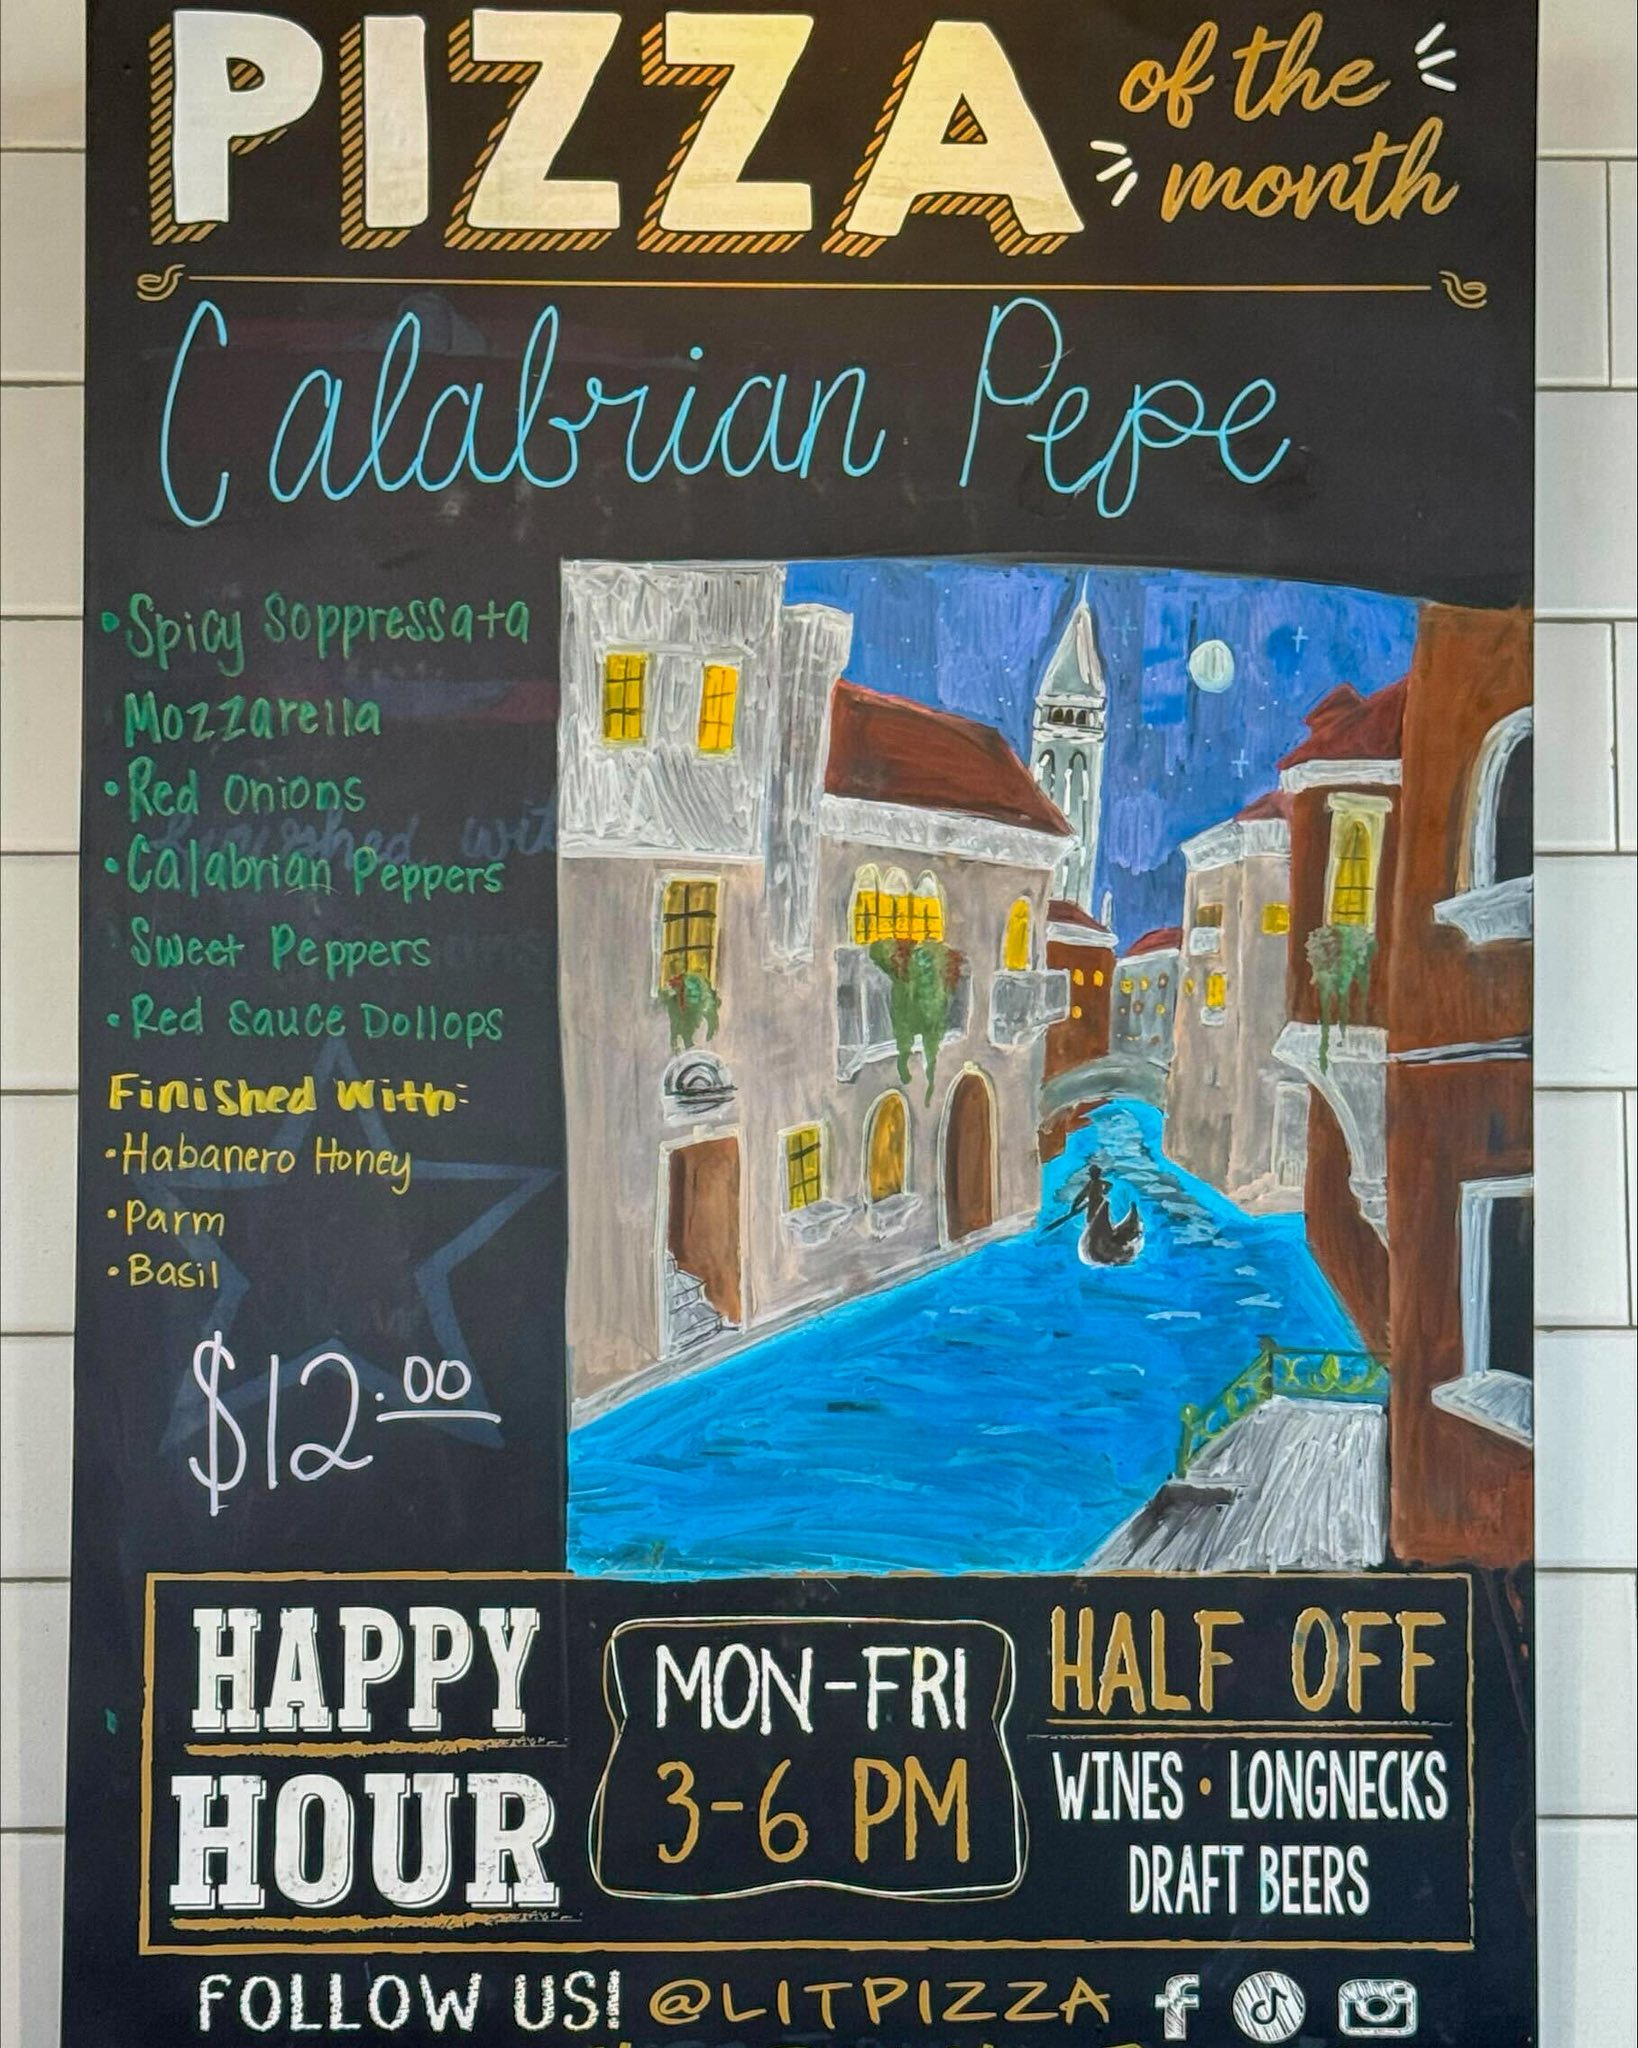 PIZZA of the month
Calabrian Pepe
• Spicy Soppressata
Mozzarella
• Red Onions
• Calabrian Peppers
Sweet Peppers
• Red Sauce Dollops
Finished With:
• Habanero Honey
• Parm
• Basil
$12.00
HAPPY HOUR
MON-FRI
3-6 PM
HALF OFF
WINES • LONGNECKS
DRAFT BEERS
FOLLOW US! @LITPIZZA